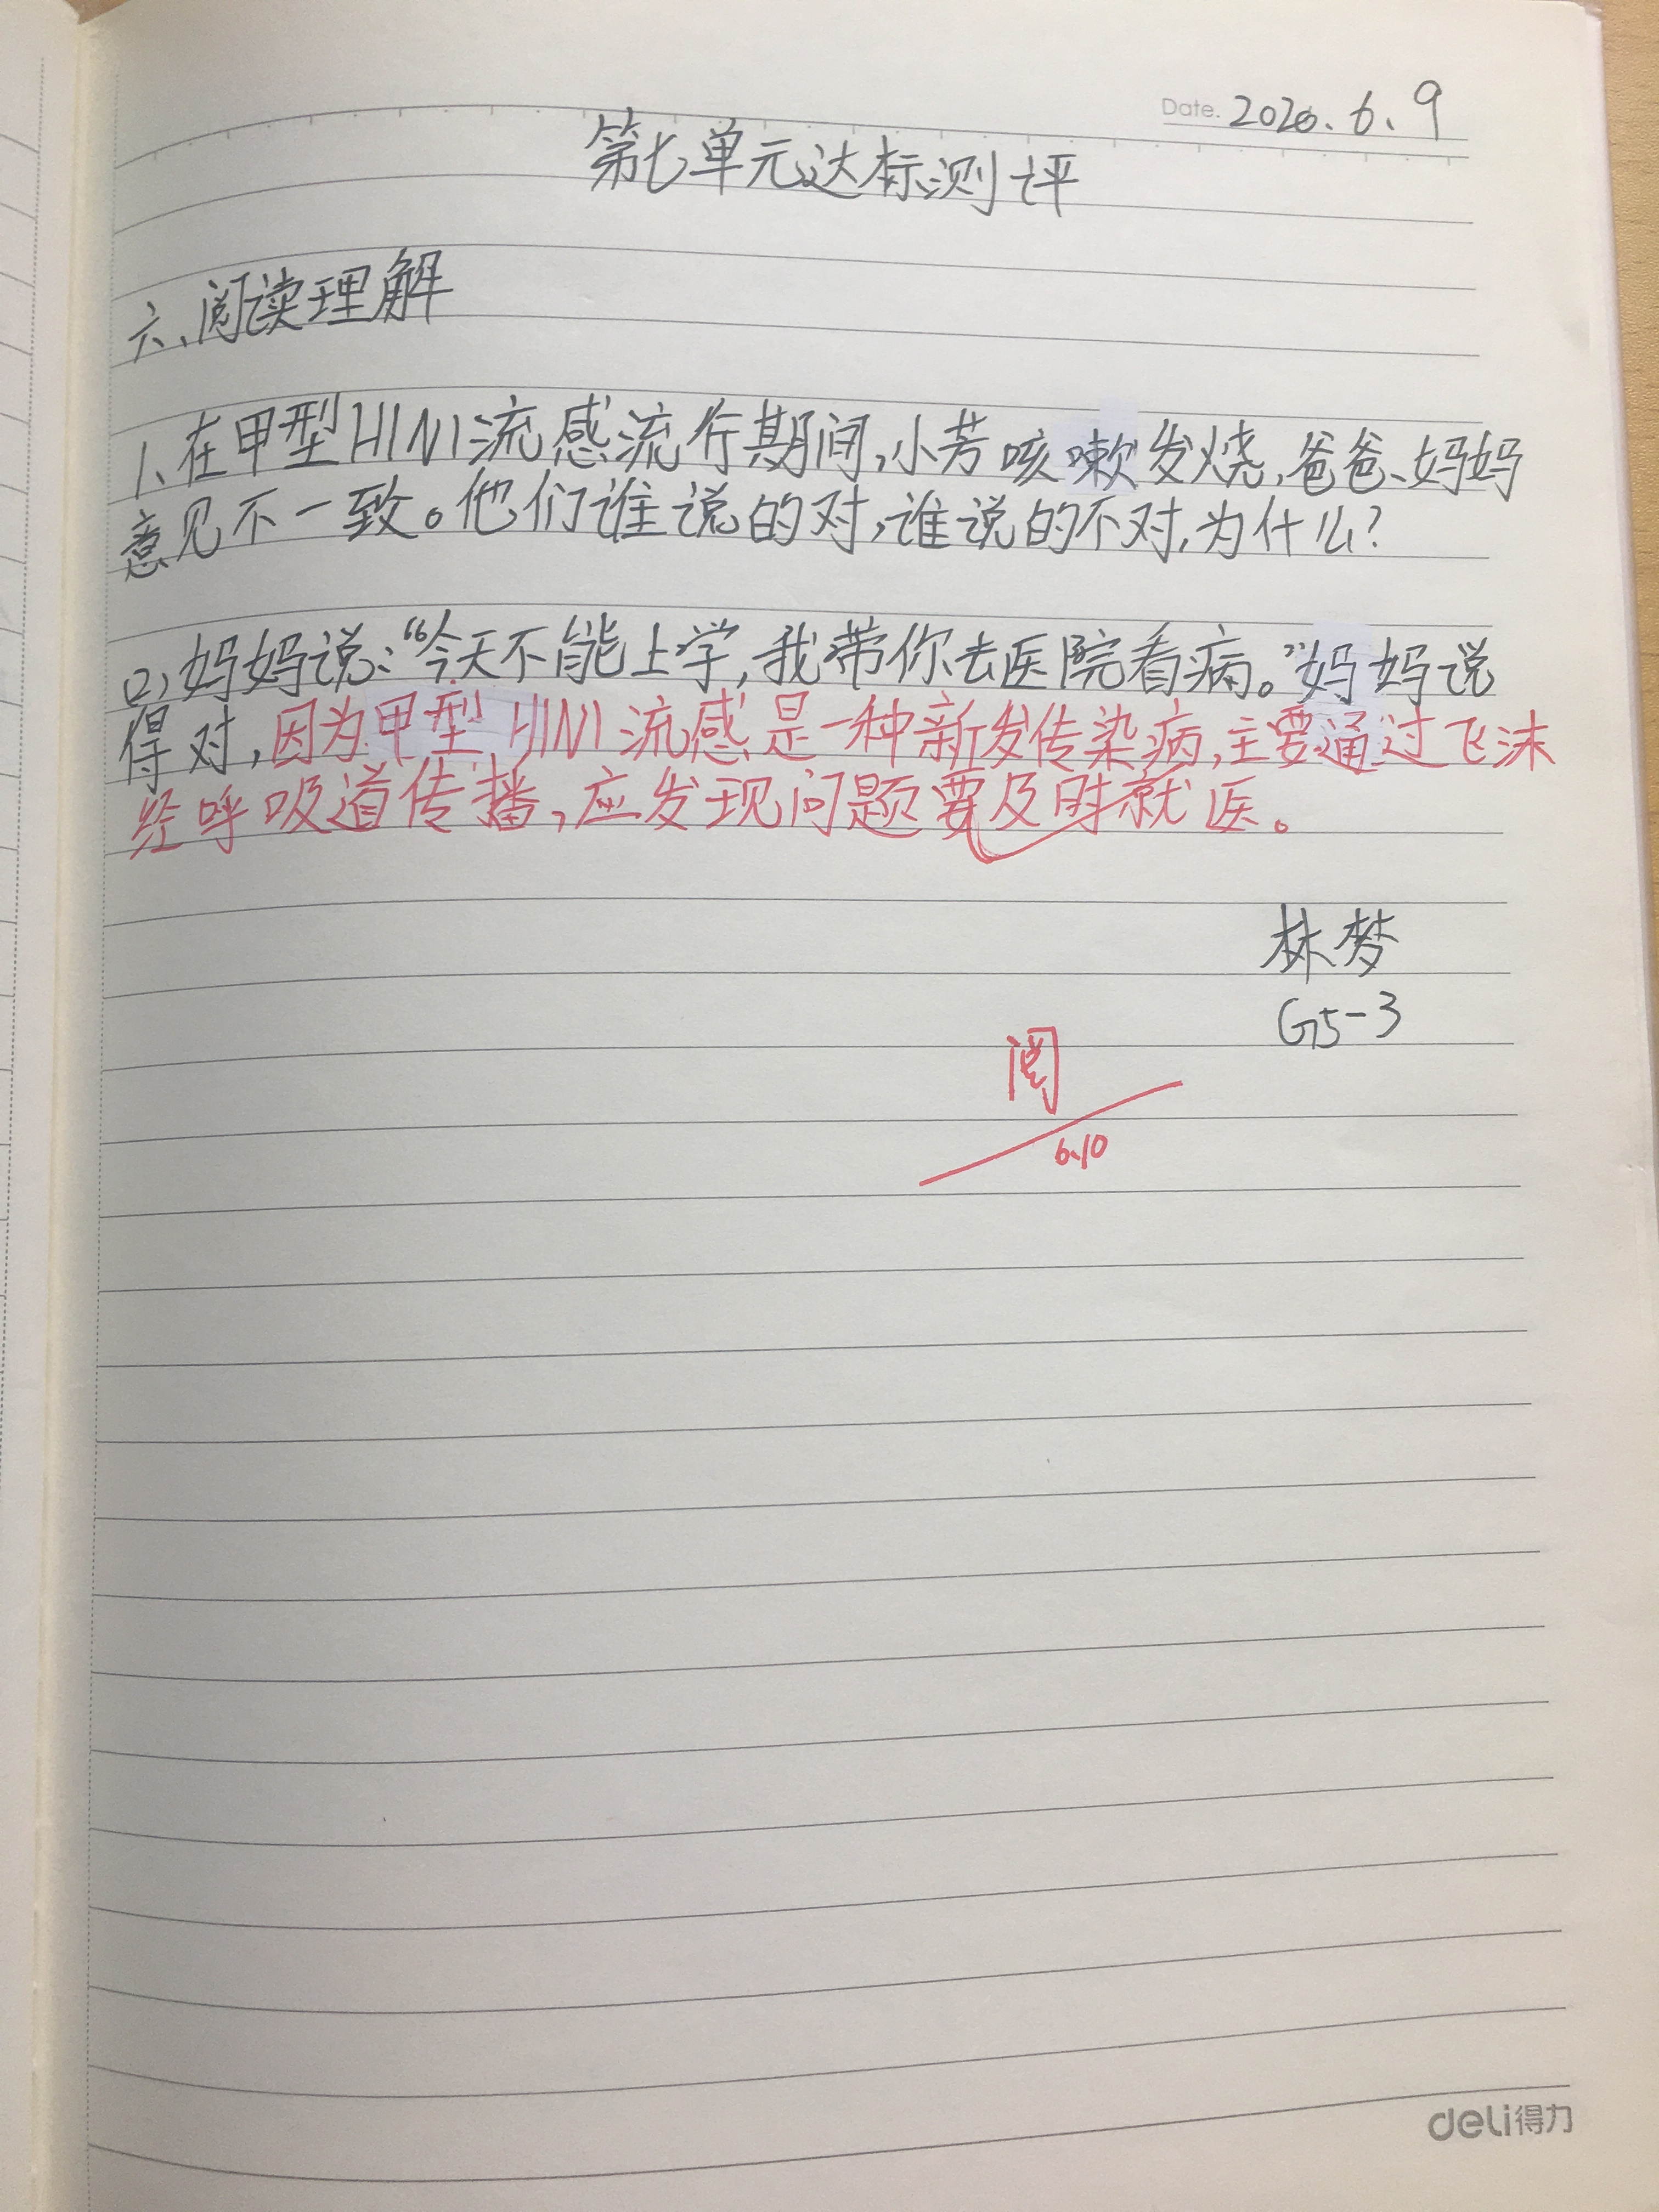 Date. 2020.6.9
第七单元达标测评
六、阅读理解
1、在甲型H1N1流感流行期间,小芳咳嗽发烧,爸爸、妈妈
意见不一致。他们谁说的对,谁说的不对,为什么?
(2)妈妈说:“今天不能上学,我带你去医院看病。”妈妈说
得对,因为甲型H1N1流感是一种新发传染病,主要通过飞沫
经呼吸道传播,应发现问题要及时就医。
林梦
G5-3
阅
6.10
deli得力